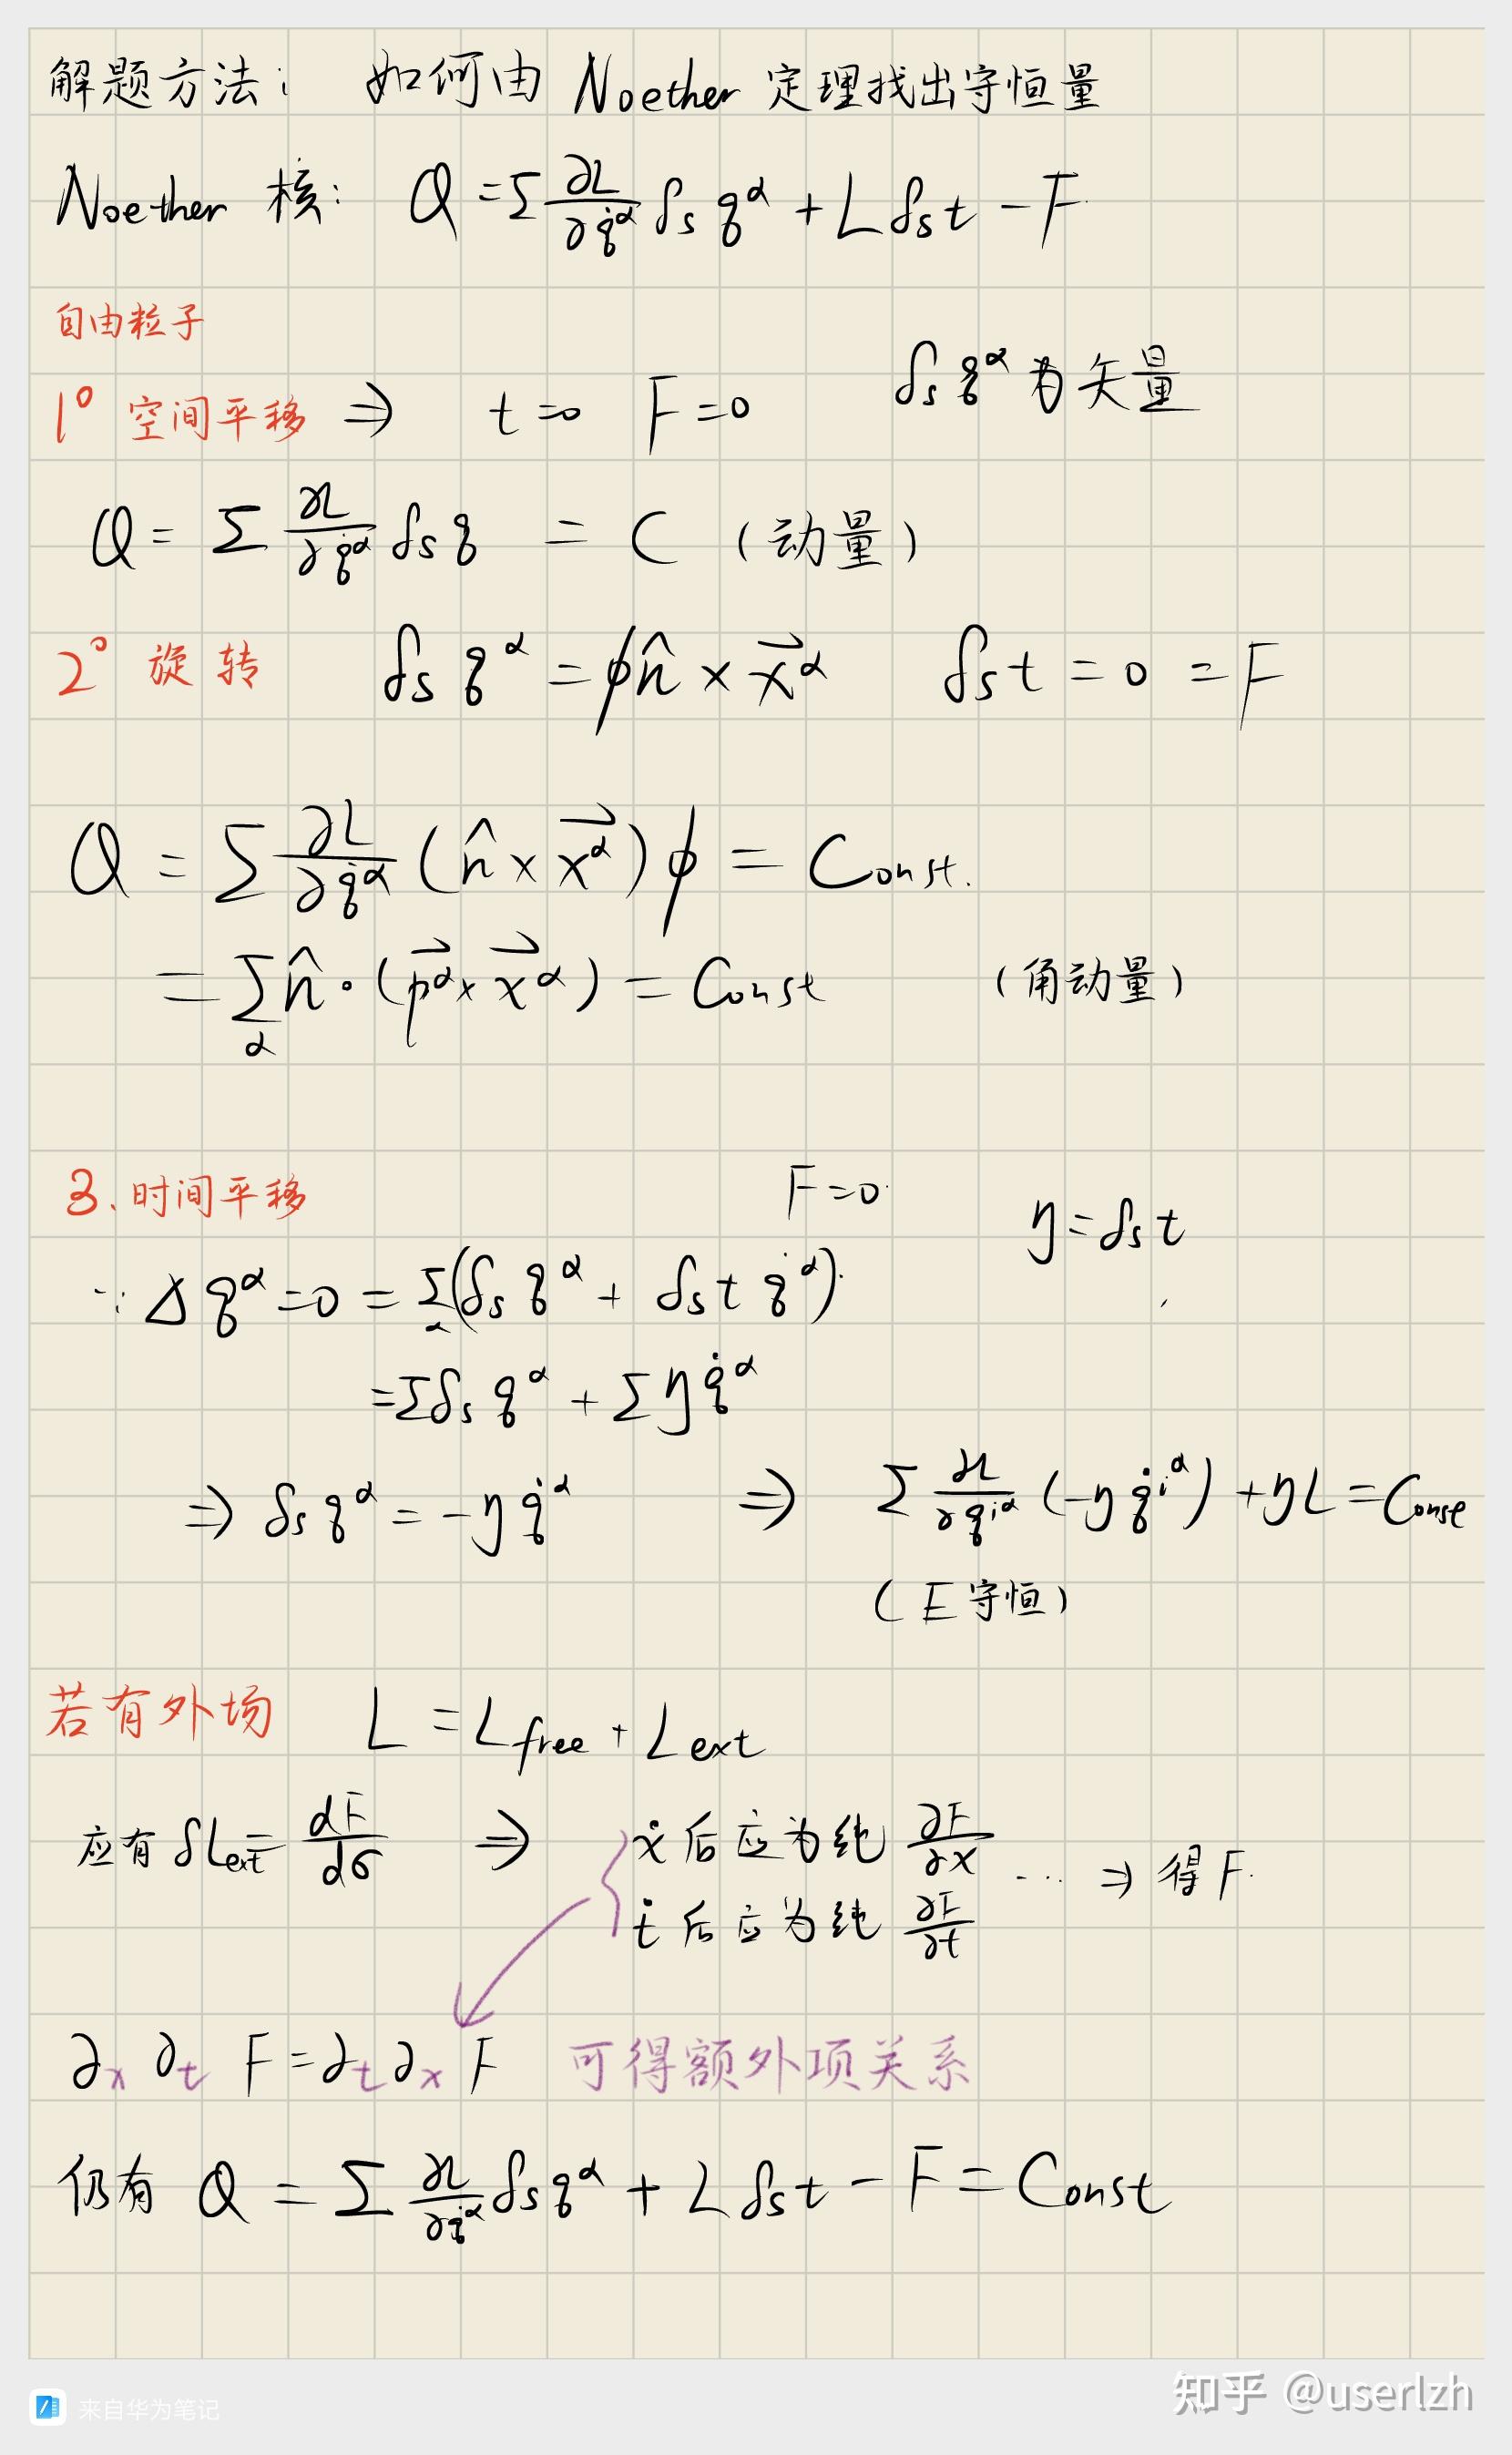 解题方法: 如何由 Noether 定理找出守恒量
Noether 核: Q = Σ ∂L/∂q̇^α δₛ q^α + L δₛt − F
自由粒子
δₛ q^α 为矢量
1° 空间平移 ⇒ t=0 F=0
Q = Σ ∂L/∂q̇^α δₛ q = C (动量)
2° 旋转 δₛ q^α = ϕn̂ × x⃗^α δₛt = 0 = F
Q = Σ ∂L/∂q̇^α (n̂ × x⃗^α) ϕ = Const.
= Σ_α n̂ · (p⃗^α × x⃗^α) = Const (角动量)
3. 时间平移 F=0 η = δₛt
∵ Δq^α = 0 = Σ_α (δₛ q^α + δₛt q̇^α)
= Σ δₛ q^α + Σ η q̇^α
⇒ δₛ q^α = −η q̇^α ⇒ Σ ∂L/∂q̇^α (−η q̇^α) + ηL = Const
(E守恒)
若有外场 L = L_free + L_ext
应有 δL_ext = dF/dσ ⇒ ẋ 后应为纯 ∂F/∂x ... ⇒ 得 F.
ṫ 后应为纯 ∂F/∂t
∂ₓ ∂ₜ F = ∂ₜ ∂ₓ F 可得额外项关系
仍有 Q = Σ ∂L/∂q̇^α δₛ q^α + L δₛt − F = Const
来自华为笔记
知乎 @userlzh